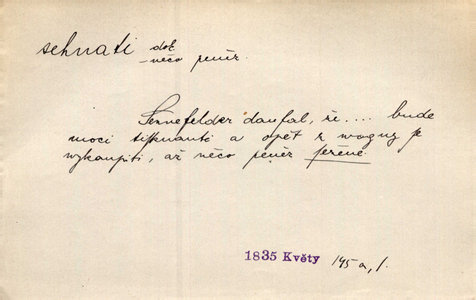 sehnati dok.
– něco peněz.
Sennefelder doufal, že .... bude
moci tisknouti a opět z wazuny je
wykoupiti, až něco peněz sežene.
1835 Květy 145 a, 1.